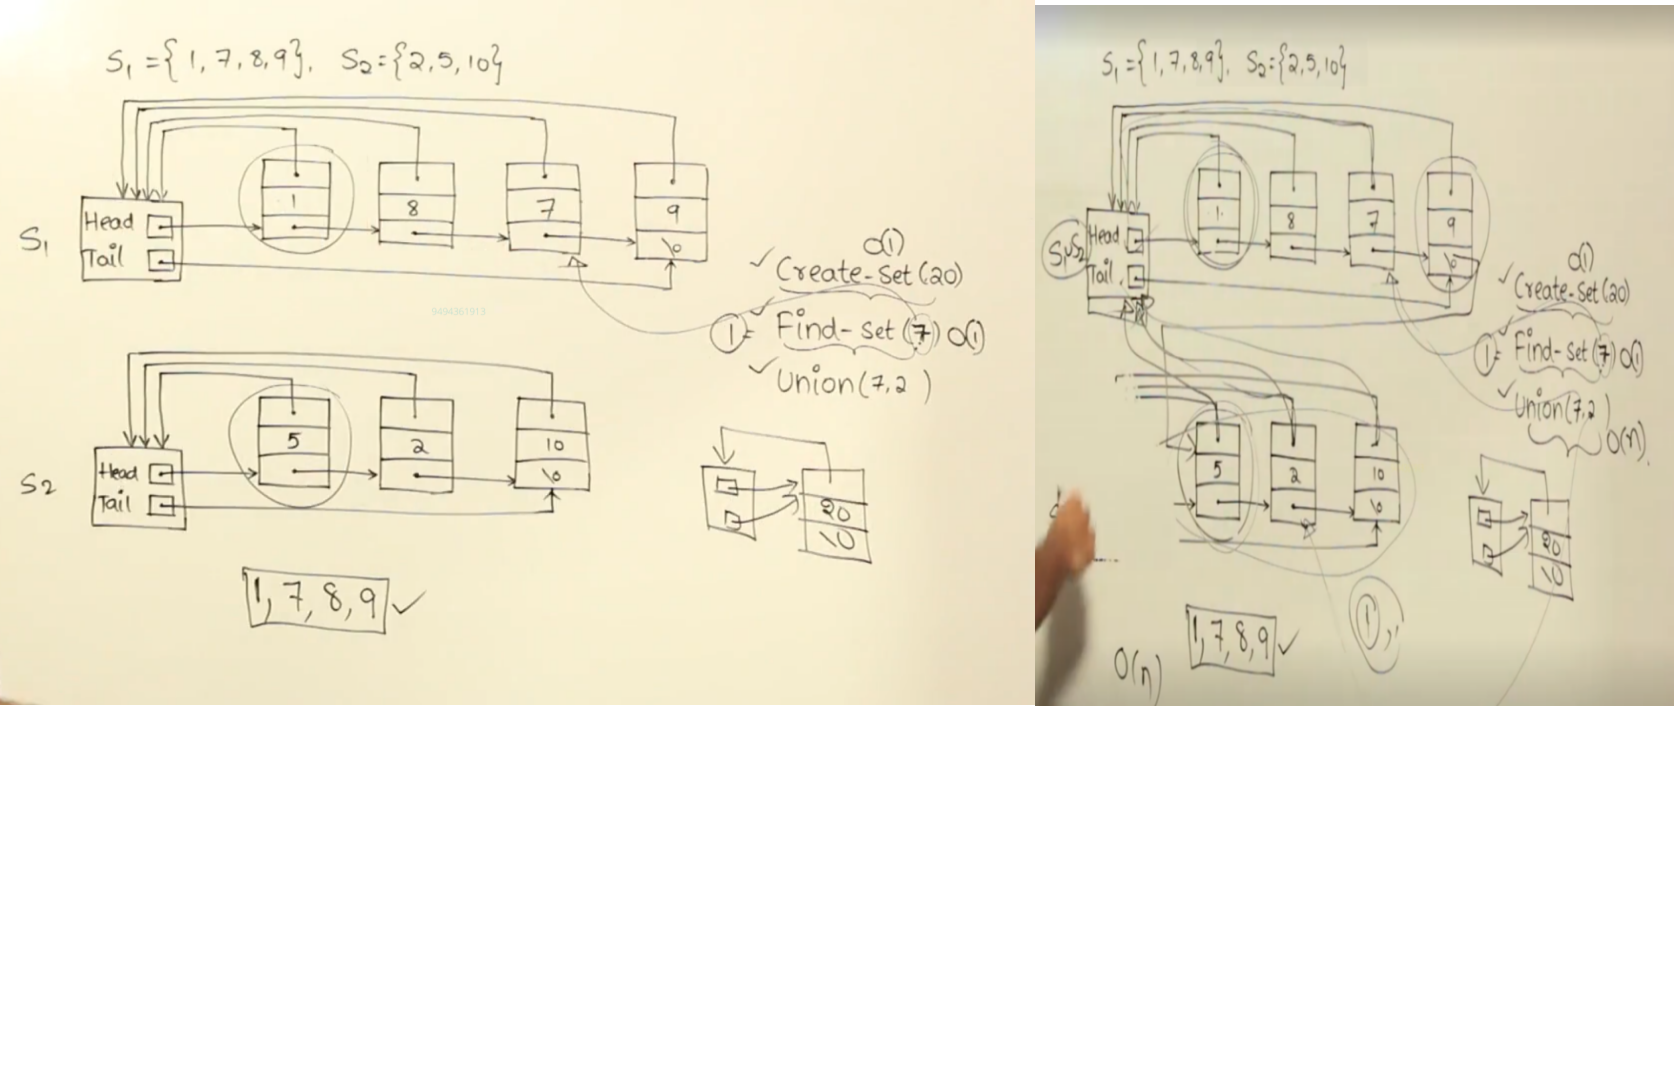 S₁ = {1, 7, 8, 9}, S₂ = {2, 5, 10}
S₁
Head
Tail
1
8
7
9
\0
O(1)
✓ Create-Set(20)
① = ✓ Find-Set(7) O(1)
✓ Union(7,2)
9494361913
S2
Head
Tail
5
2
10
\0
20
\0
1, 7, 8, 9 ✓
S₁ = {1, 7, 8, 9}, S₂ = {2, 5, 10}
S₁∪S₂
Head
Tail
1
8
7
9
\0
O(1)
✓ Create-Set(20)
① = ✓ Find-Set(7) O(1)
✓ Union(7,2)
O(n)
5
2
10
\0
20
\0
①
1, 7, 8, 9 ✓
O(n)